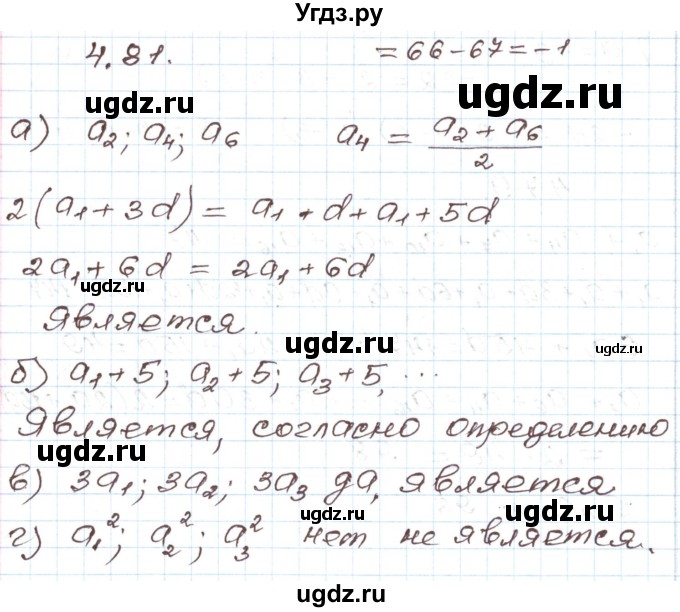 Угдз.ру
4.81. = 66 - 67 = -1
ugdz.ru
ugdz.ru
а) a₂; a₄; a₆ a₄ = (a₂ + a₆)/2
2(a₁ + 3d) = a₁ + d + a₁ + 5d
2a₁ + 6d = 2a₁ + 6d
ugdz.ru
Является.
ugdz.ru
ugdz.ru
б) a₁ + 5; a₂ + 5; a₃ + 5, ...
Является, согласно определению
ugdz.ru
в) 3a₁; 3a₂; 3a₃ да, является
ugdz.ru
ugdz.ru
г) a₁²; a₂²; a₃² нет не является.
ugdz.ru
ugdz.ru